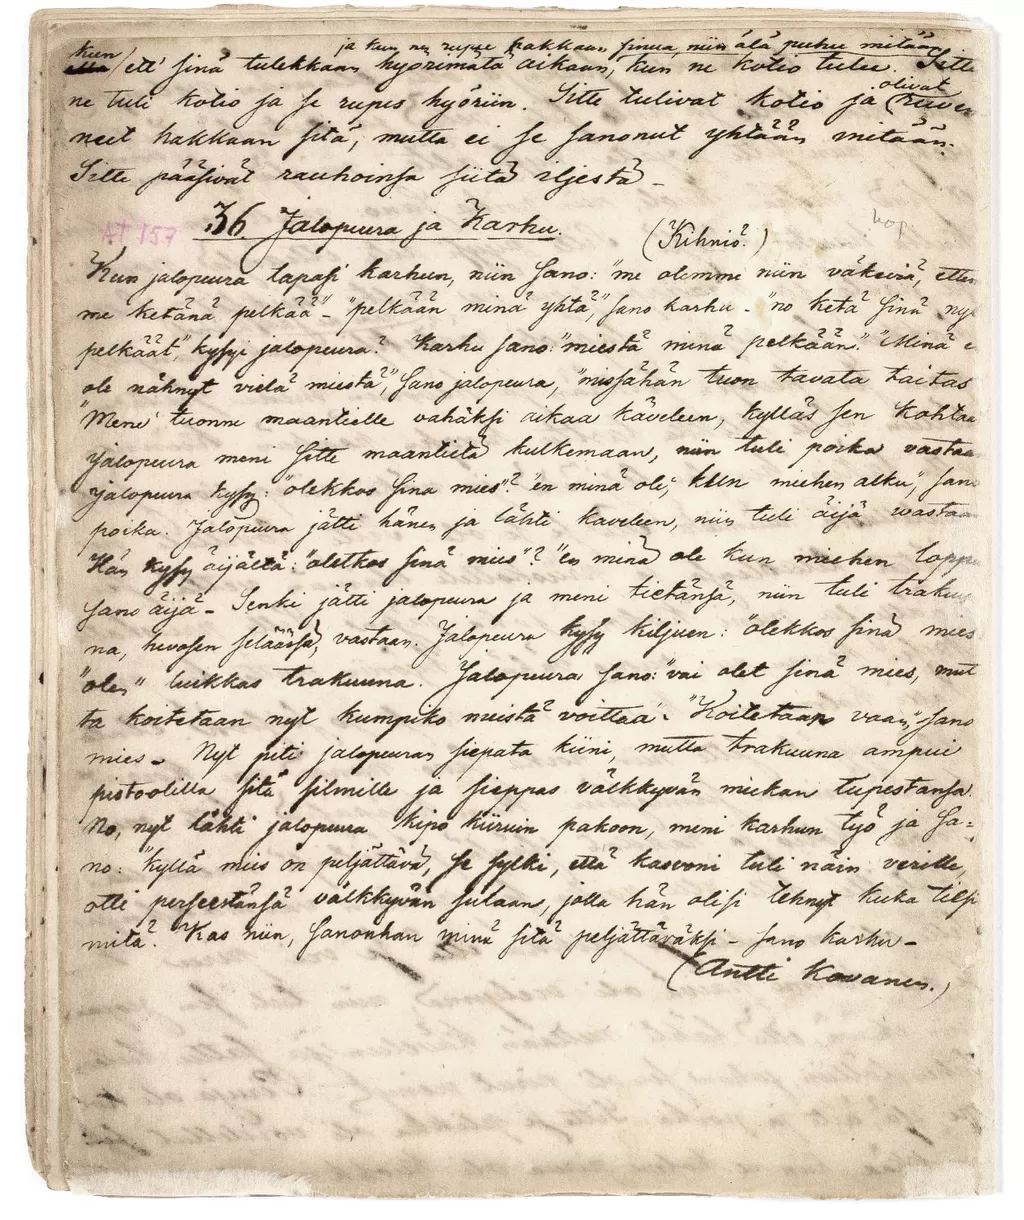 ja kun ne rupee hakkaan sinua, niin älä puhu mitään
kun että sinä tulekkaan hyörimätä aikaan, kun ne kotio tulee. Sitte
ne tuli kotio ja se rupes hyöriin. Sitte tulivat kotio ja olivat
neet hakkaan sitä, mutta ei se sanonut yhtään mitään.
Sitte pääsivät rauhoinsa siitä iljestä –
AT 157 36 Jalopeura ja Karhu. (Kihniö.)
Kun jalopeura tapasi karhun, niin sano: "me olemme niin väkeviä, etten
me ketänä pelkää" – "pelkään minä yhtä," sano karhu – "no ketä sinä nyt
pelkäät," kysyi jalopeura? Karhu sano: "miestä minä pelkään." "Minä e
ole nähnyt vielä miestä," sano jalopeura, "missähän tuon tavata taitas
"Mene tuonne maantielle vähäksi aikaa käveleen, kylläs sen kohtaa
Jalopeura meni sitte maantietä kulkemaan, niin tuli poika vastaa
jalopeura kysy: "olekkos sina mies"? "en minä ole, kun miehen alku", sano
poika. Jalopeura jätti hänen ja lähti kaveleen, niin tuli äijä vastaan
Hän kysy äijältä: "oletkos sinä mies"? "en minä ole kun miehen loppu
sano äijä – Senki jätti jalopeura ja meni tietänsä, niin tuli trakuu
na, hevosen seläässä, vastaan. Jalopeura kysy kiljuen: "olekkos sinä mies
"olen" luikkas trakuuna. Jalopeura sano: "vai olet sinä mies, mut
ta koitetaan nyt kumpiko meistä voittaa." "Koitetaan vaan," sano
mies – Nyt piti jalopeuran siepata kiini, mutta trakuuna ampui
pistoolilla sitä silmille ja sieppas välkkyvän miekan tupestansa.
No, nyt lähti jalopeura kipo kiiruin pakoon, meni karhun työ ja sa-
no: "kyllä mies on peljättävä, se sylki, että kasvoni tuli näin verille,
otti perseestänsä välkkyvän sulaan, jolla hän olisi tehnyt kuka tiesi
mitä. Kas niin, sanonhan minä sitä peljättäväksi – sano karhu –
(Antti Kovanen.)